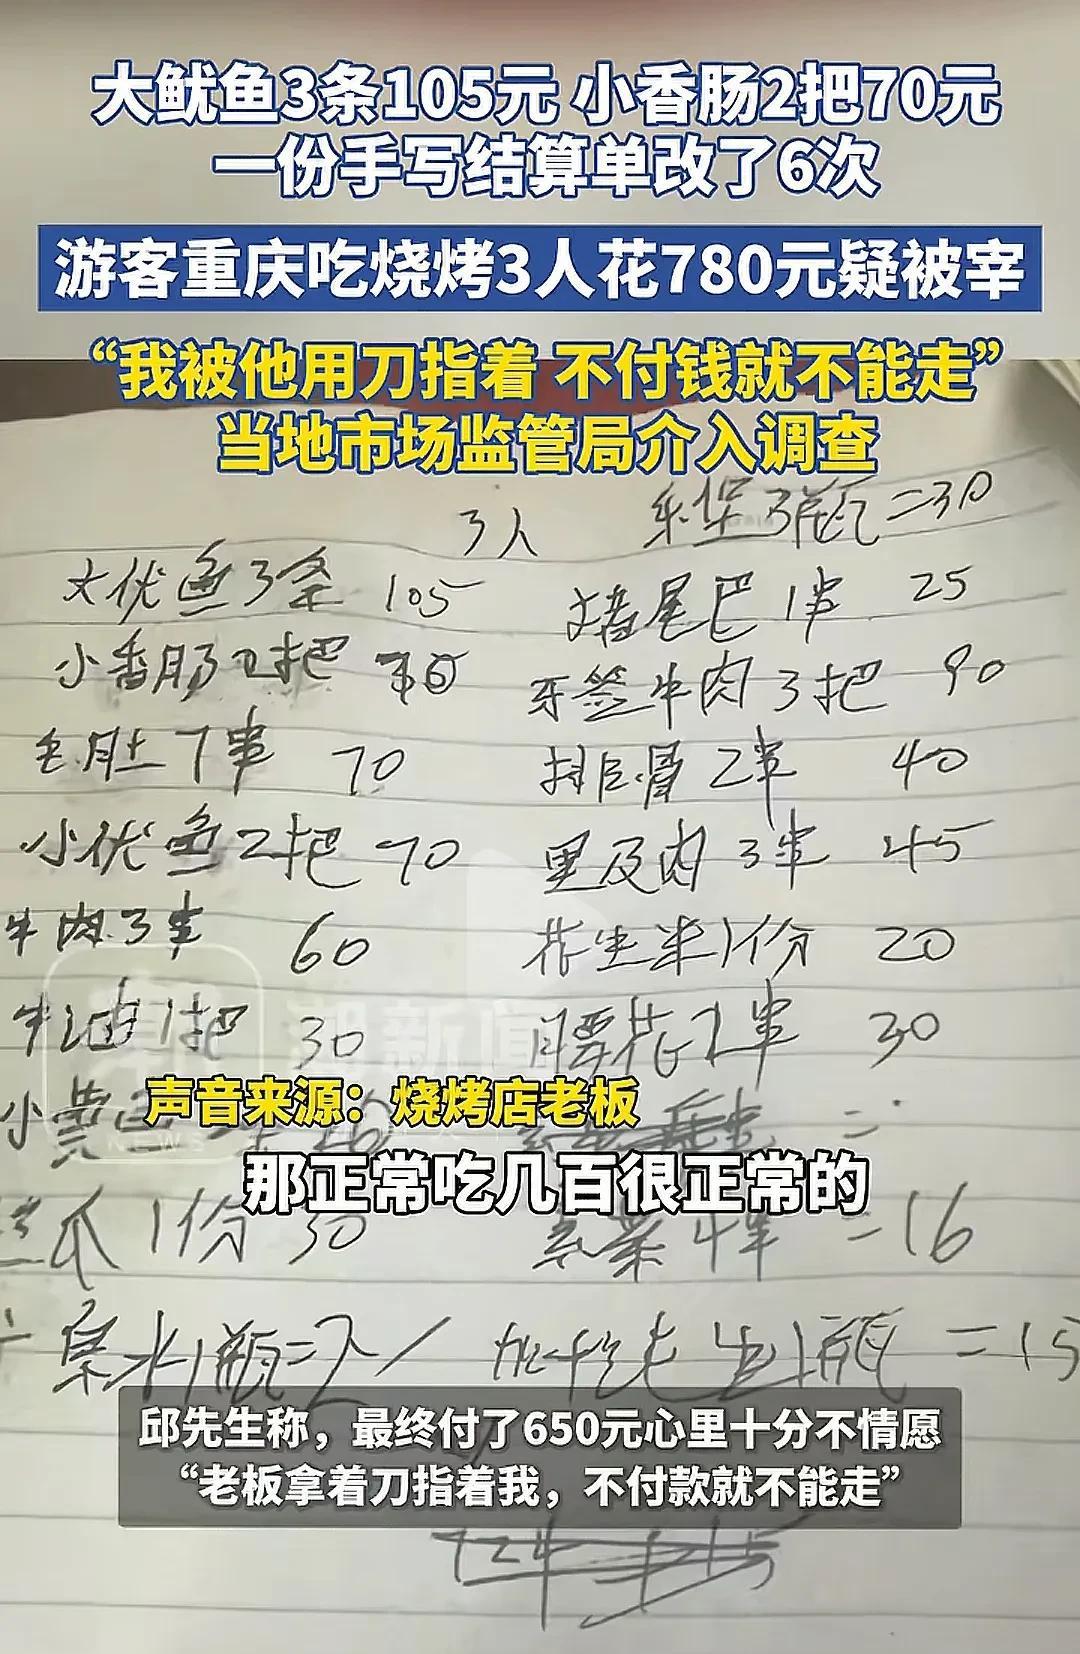 大鱿鱼3条105元 小香肠2把70元
一份手写结算单改了6次
游客重庆吃烧烤3人花780元疑被宰
“我被他用刀指着 不付钱就不能走”
当地市场监管局介入调查
3人
乐堡3瓶=30
大优鱼3条 105
猪尾巴1串 25
小香肠2把
牙签牛肉3把 90
毛肚7串 70
排骨2串 40
小优鱼2把 70
里及肉3串 45
牛肉3串 60
花生米1份 20
牛油1把 30
腰花2串 30
潮新闻
NEWS
声音来源：烧烤店老板
小黄
那正常吃几百很正常的
瓜1份 30
素菜4串=16
泉水1瓶=2
1瓶=15
邱先生称，最终付了650元心里十分不情愿
“老板拿着刀指着我，不付款就不能走”